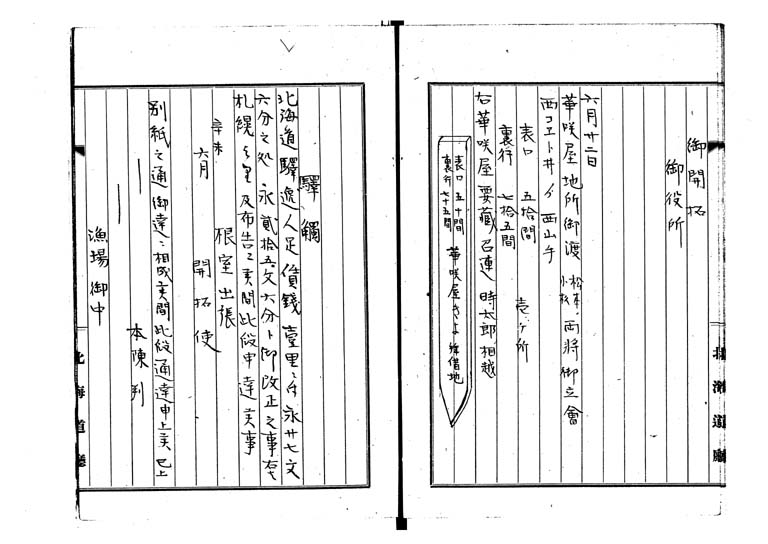 御開拓
御役所
六月廿二日
華咲屋地所御渡 松本 小牧 両將御立會
西コヱト井ゟ西山手
表口 五拾間
裏行 七拾五間 壱ヶ所
右華咲屋要藏召連時太郎相越
表口 五十間
裏行 七十五間
華咲屋きよ 拝借地
驛觸
北海道驛逓人足賃錢壹里ニ付永廿七文
六分之処永貳拾五文六分ト御改正之事
札幌ゟ里及布告ニ候間此段申達候事
辛未
六月 根室出張
開拓使
別紙之通御達ニ相成候間此段通達申上候 已上
本陳列
漁場御中
北海道廳
北海道廳